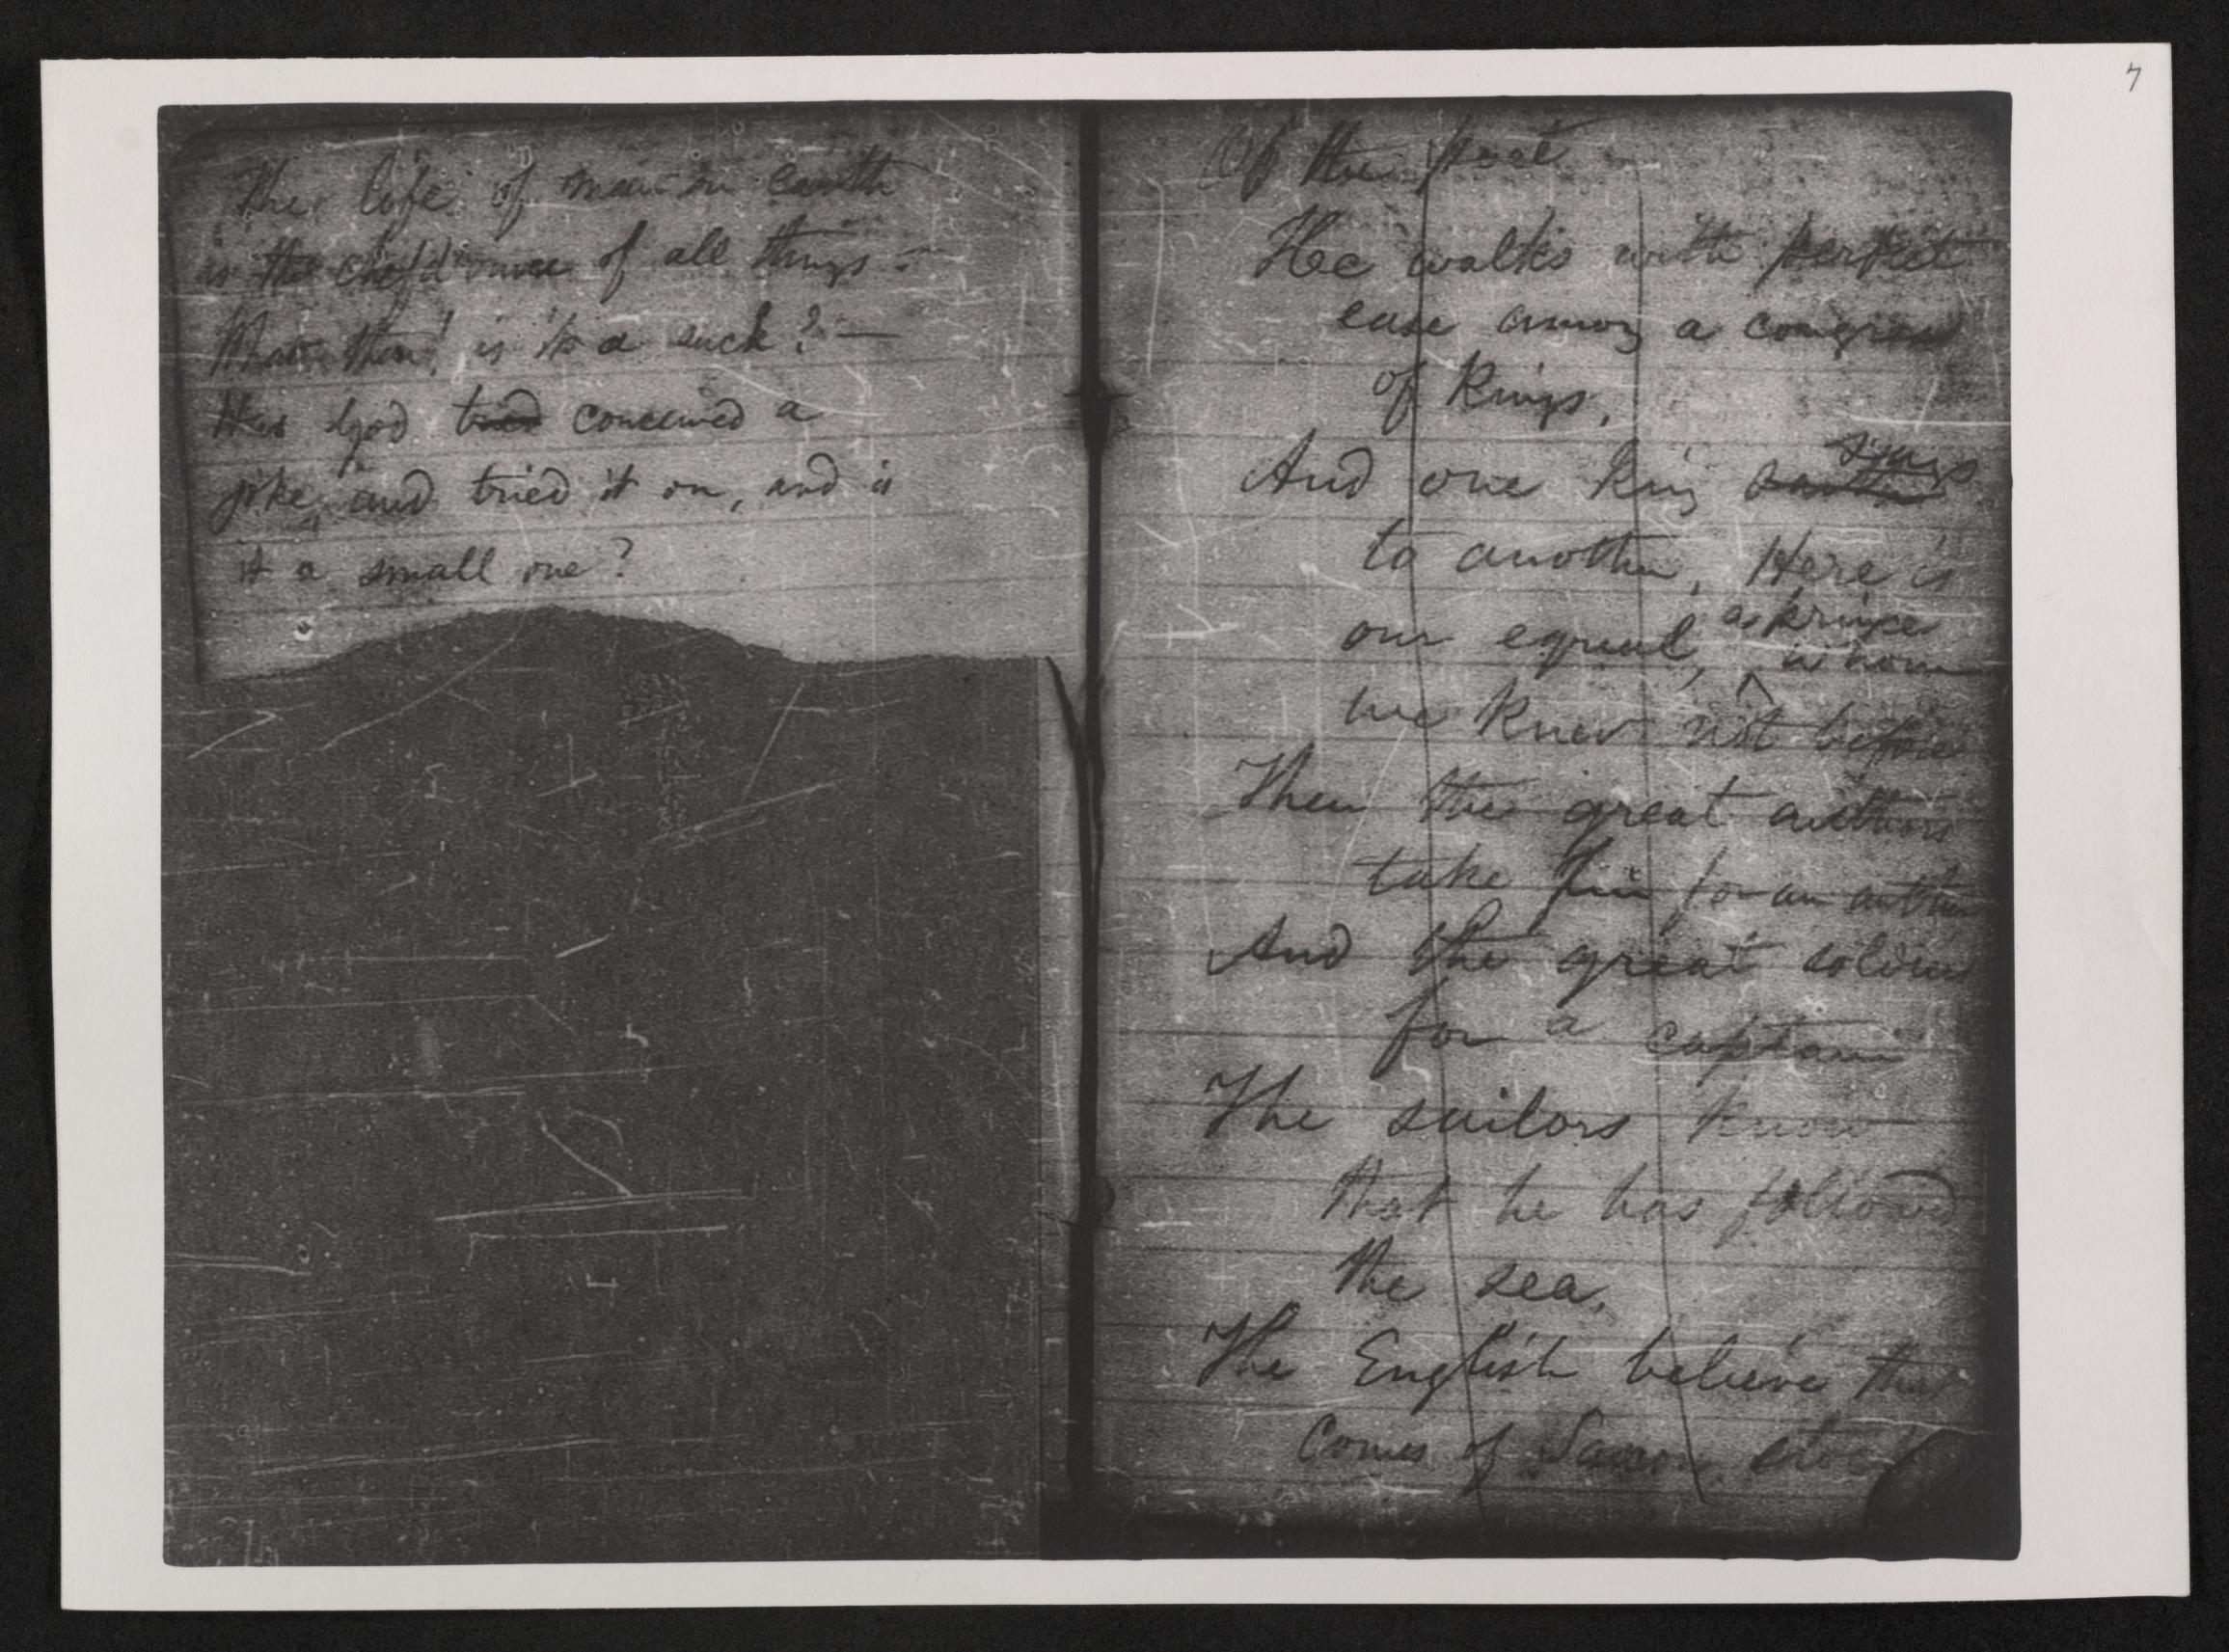 7
The life of man on earth
is the chef d'ouvre of all things –
What then! is it a suck? —
Has God tried conceived a
joke, and tried it on, and is
it a small one?
Of the poet
He walks with perfect
ease among a congress
of Kings,
And one king says
to another, Here is
our equal, a prince whom
we knew not before
Then the great authors
take him for an author
And the great soldiers
for a captain
The sailors know
that he has followed
the sea,
The English believe he
comes of Saxon stock